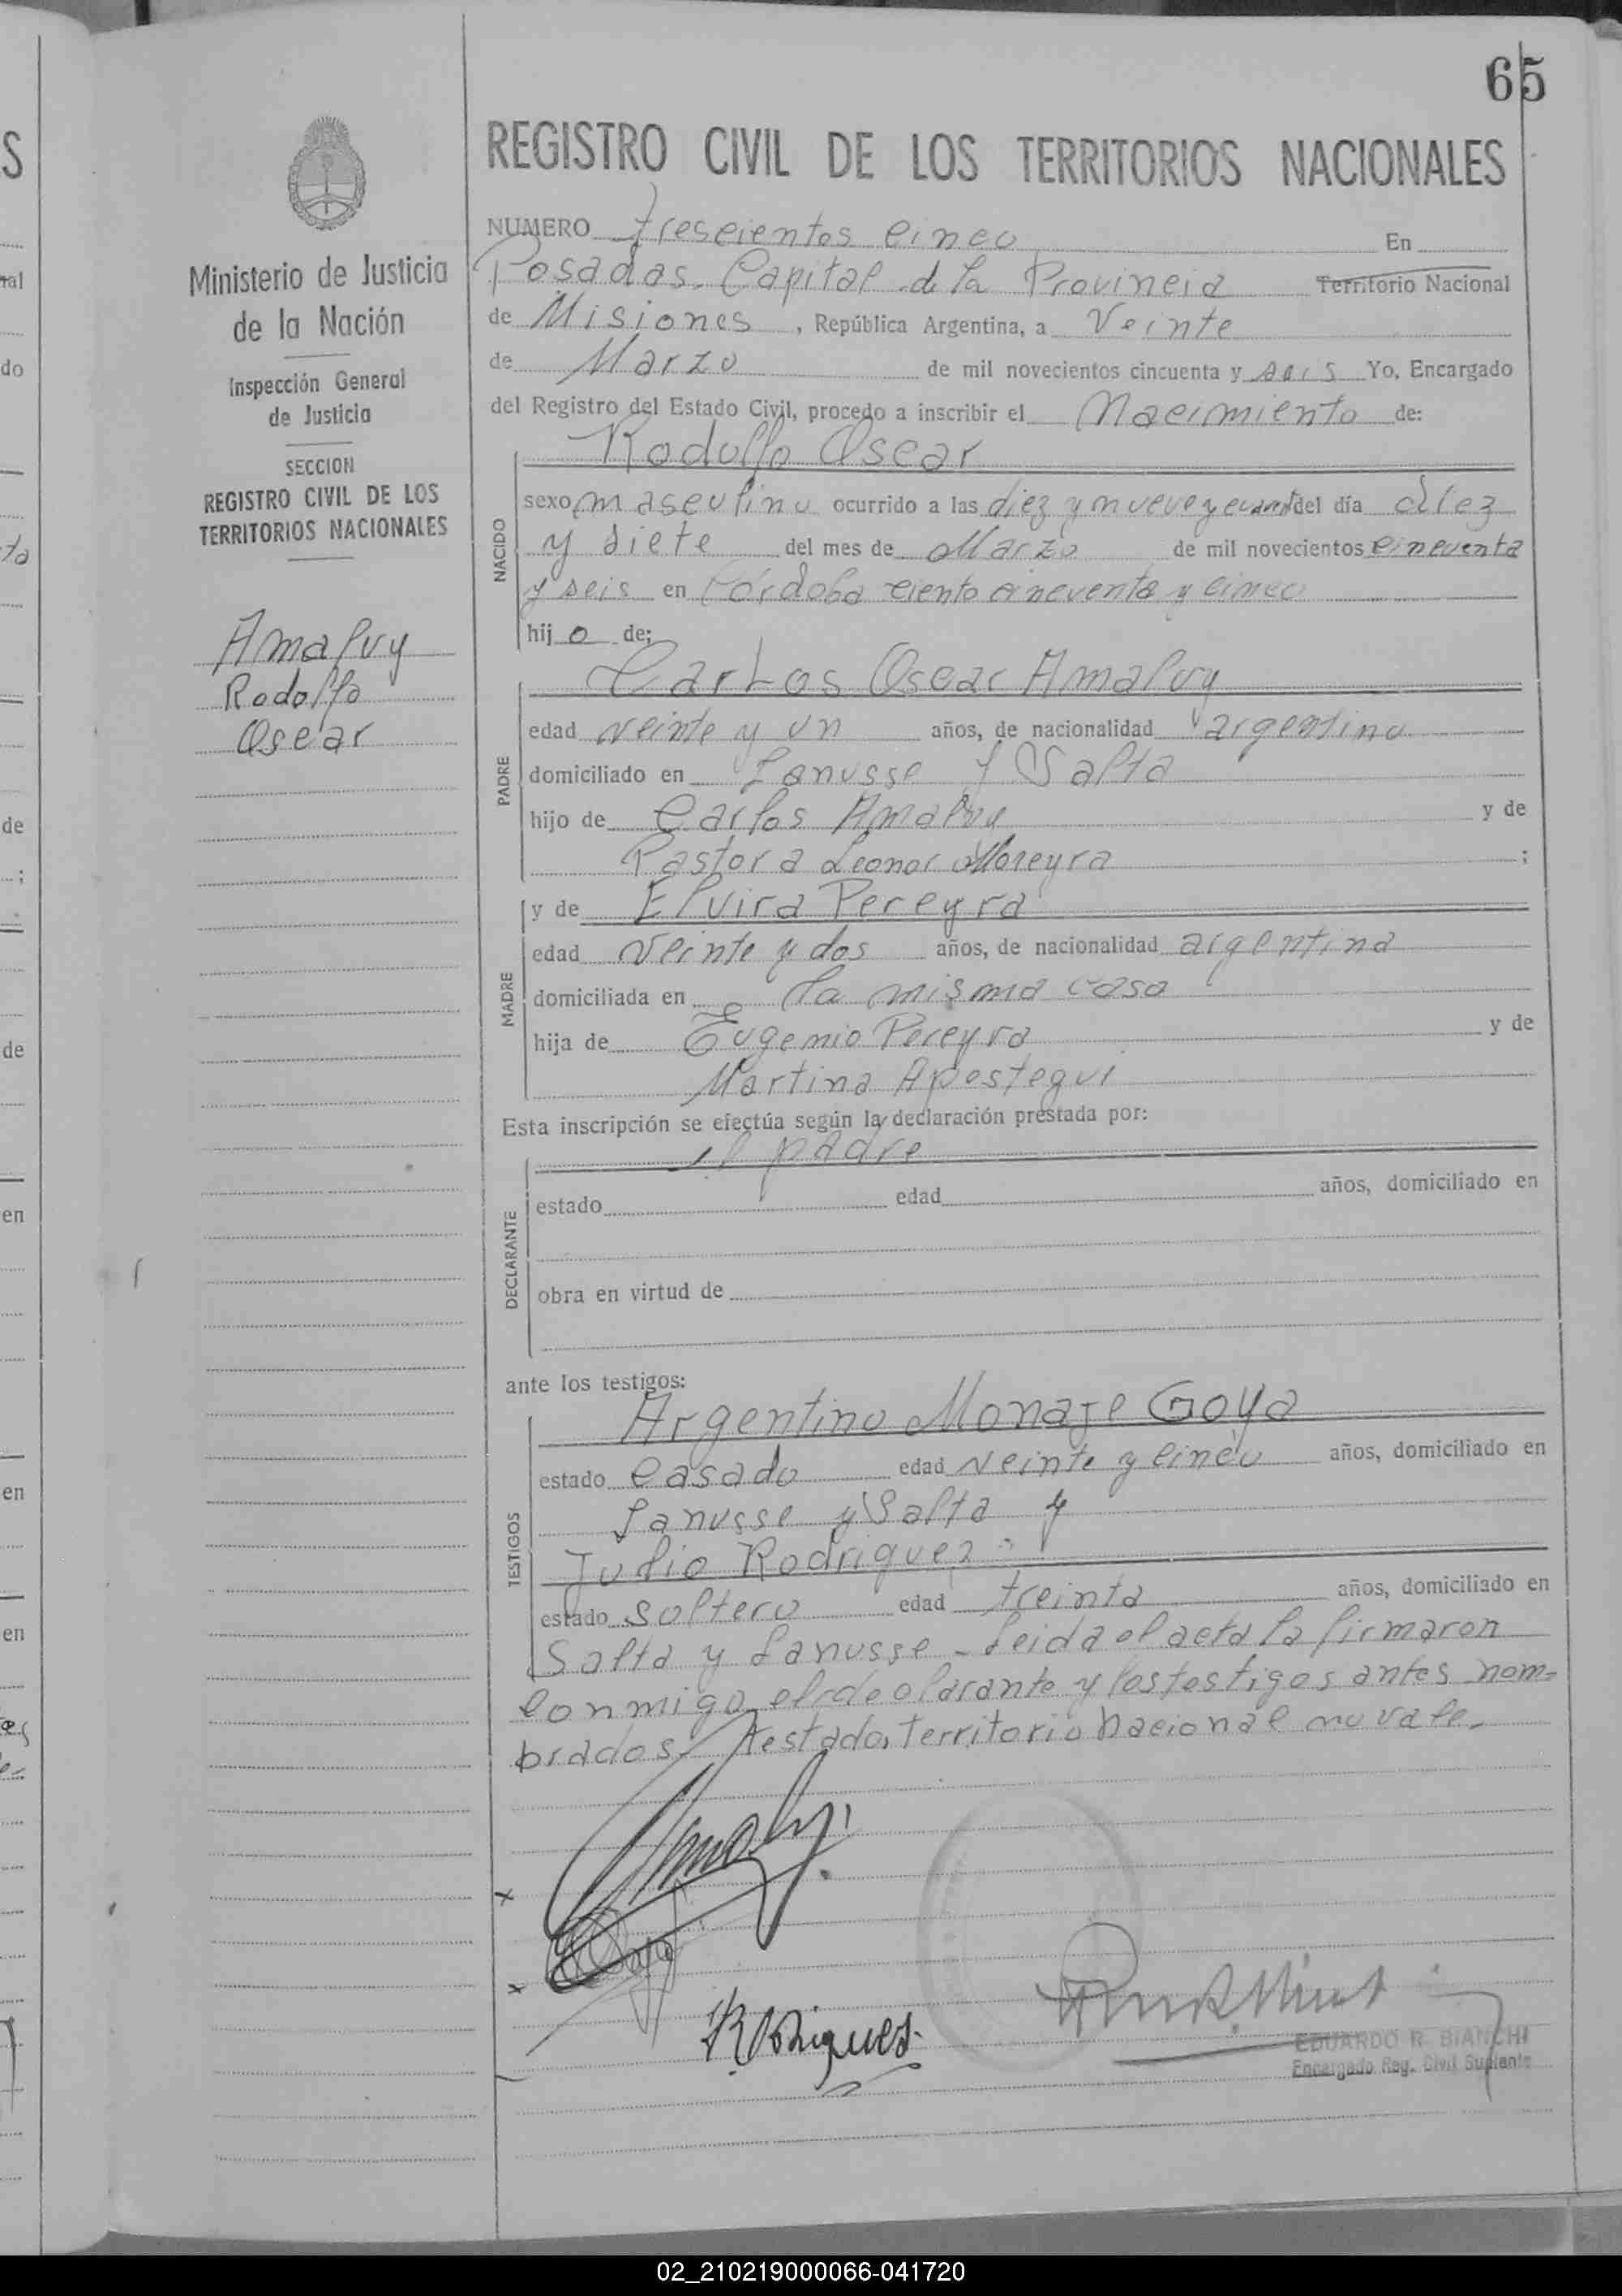 65
REGISTRO CIVIL DE LOS TERRITORIOS NACIONALES
Ministerio de Justicia
de la Nación
Inspección General
de Justicia
SECCION
REGISTRO CIVIL DE LOS
TERRITORIOS NACIONALES
Amaluy
Rodolfo
Oscar
NUMERO Trescientos cinco En
Posadas. Capital de la Provincia Territorio Nacional
de Misiones, República Argentina, a Veinte
de Marzo de mil novecientos cincuenta y seis Yo, Encargado
del Registro del Estado Civil, procedo a inscribir el Nacimiento de:
Rodolfo Oscar
NACIDO
sexo masculino ocurrido a las diez y nueve y del día diez
y siete del mes de Marzo de mil novecientos cincuenta
y seis en Córdoba ciento cincuenta y cinco
hijo de:
PADRE
Carlos Oscar Amaluy
edad veinte y un años, de nacionalidad argentina
domiciliado en Lanusse y Salta
hijo de Carlos Amaluy y de
Pastora Leonor Moreyra ;
MADRE
y de Elvira Pereyra
edad veinte y dos años, de nacionalidad argentina
domiciliada en la misma casa
hija de Eugenio Pereyra y de
Martina Apestegui
Esta inscripción se efectúa según la declaración prestada por:
DECLARANTE
el padre
estado edad años, domiciliado en
obra en virtud de
ante los testigos:
TESTIGOS
Argentino Monaje Goya
estado casado edad veinte y cinco años, domiciliado en
Lanusse y Salta y
Julio Rodriguez
estado soltero edad treinta años, domiciliado en
Salta y Lanusse - Leida el acta la firmaron
conmigo el declarante y los testigos antes nom=
brados/ testado, Territorio Nacional no vale.
Rodriguez
EDUARDO R. BIANCHI
Encargado Reg. Civil Suplente
02_210219000066-041720